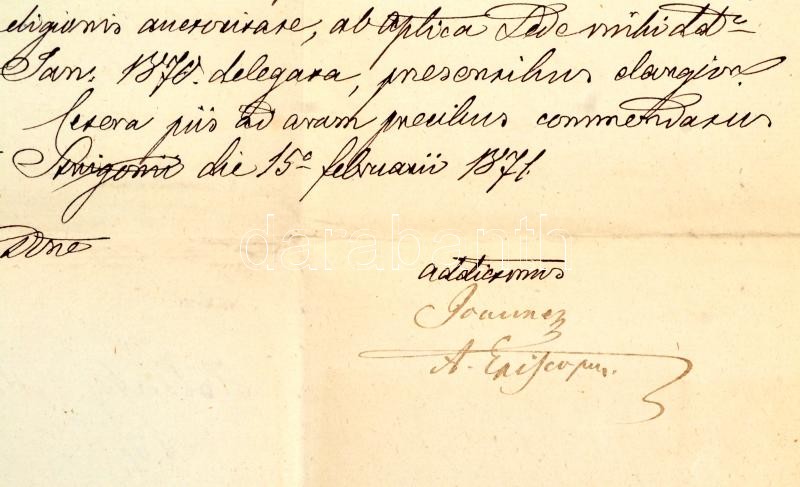 eligionis auctoritate, ab Aplica Sede mihi dat
Jan. 1870. delegata, praesentibus elargior.
Cetera piis ad aram precibus commendatus
Strigonii die 15ª februarii 1871.
Dome
addictmus
Joannes
A. Episcopus.
darabanth